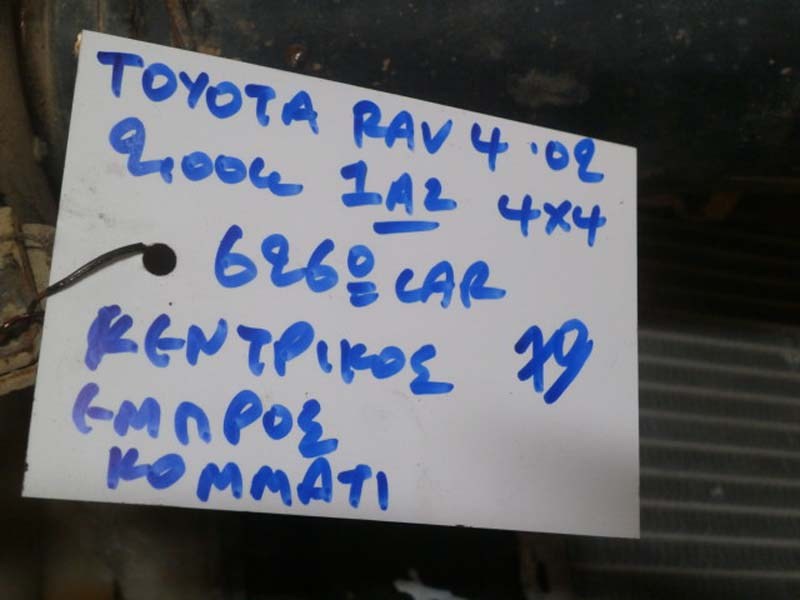 TOYOTA RAV 4 '02
2,00cc 1AZ 4X4
6260 CAR
ΚΕΝΤΡΙΚΟΣ 79
ΕΜΠΡΟΣ
ΚΟΜΜΑΤΙ